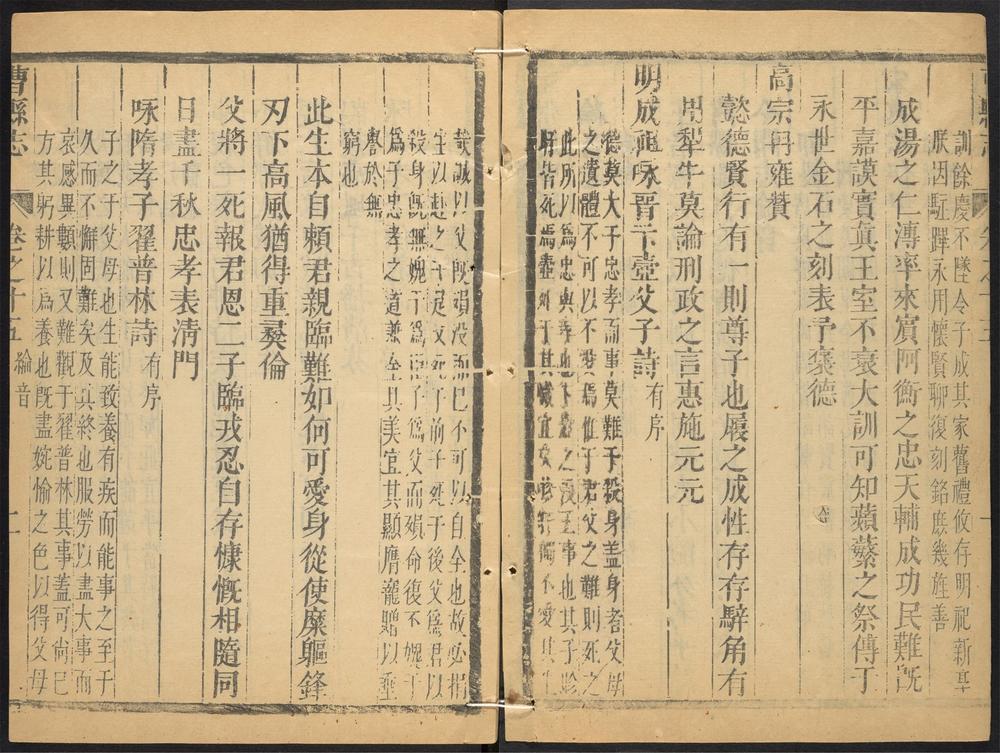 訓餘慶不墜令子成其家舊禮攸存明祀新
朕因駐蹕永用懷賢聊復刻銘庶幾旌善
成湯之仁溥率來賓阿衡之忠天輔成功民難旣
平嘉謨實眞王室不衰大訓可知蘋蘩之祭傳于
永世金石之刻表予褒德
高宗冉雍贊
懿德賢行有一則尊子也履之成性存存騂角有
用犁牛莫論刑政之言惠施元元
明成祖咏晋卞壼父子詩有序
德莫大于忠孝而事莫難于殺身盖身者父母
之遺體不可以不愛焉惟于君父之難則死之
此所以爲忠與孝也卞壼之
皆死焉壼
哉誠以父旣殞没而已不可以自全也故必捐
生以赴之子死于後父爲君以
殺身旣無媿于爲子爲父而殞命復不媿于
爲子忠孝之道兼全其美宜其顯膺寵贈以垂
譽於無
窮也
此生本自賴君親臨難如何可愛身從使糜軀鋒
刃下高風猶得重彝倫
父將一死報君恩二子臨戎忍自存慷慨相隨同
日盡千秋忠孝表淸門
咏隋孝子翟普林詩有序
子之于父母也生能致養有疾而能事之至于
久而不懈固難矣及其終也服勞以盡大事而
哀感異顙則又難觀于翟普林其事蓋可尚已
方其躬耕以爲養也旣盡婉愉之色以得父母
曹縣志
卷之十五
綸音
二